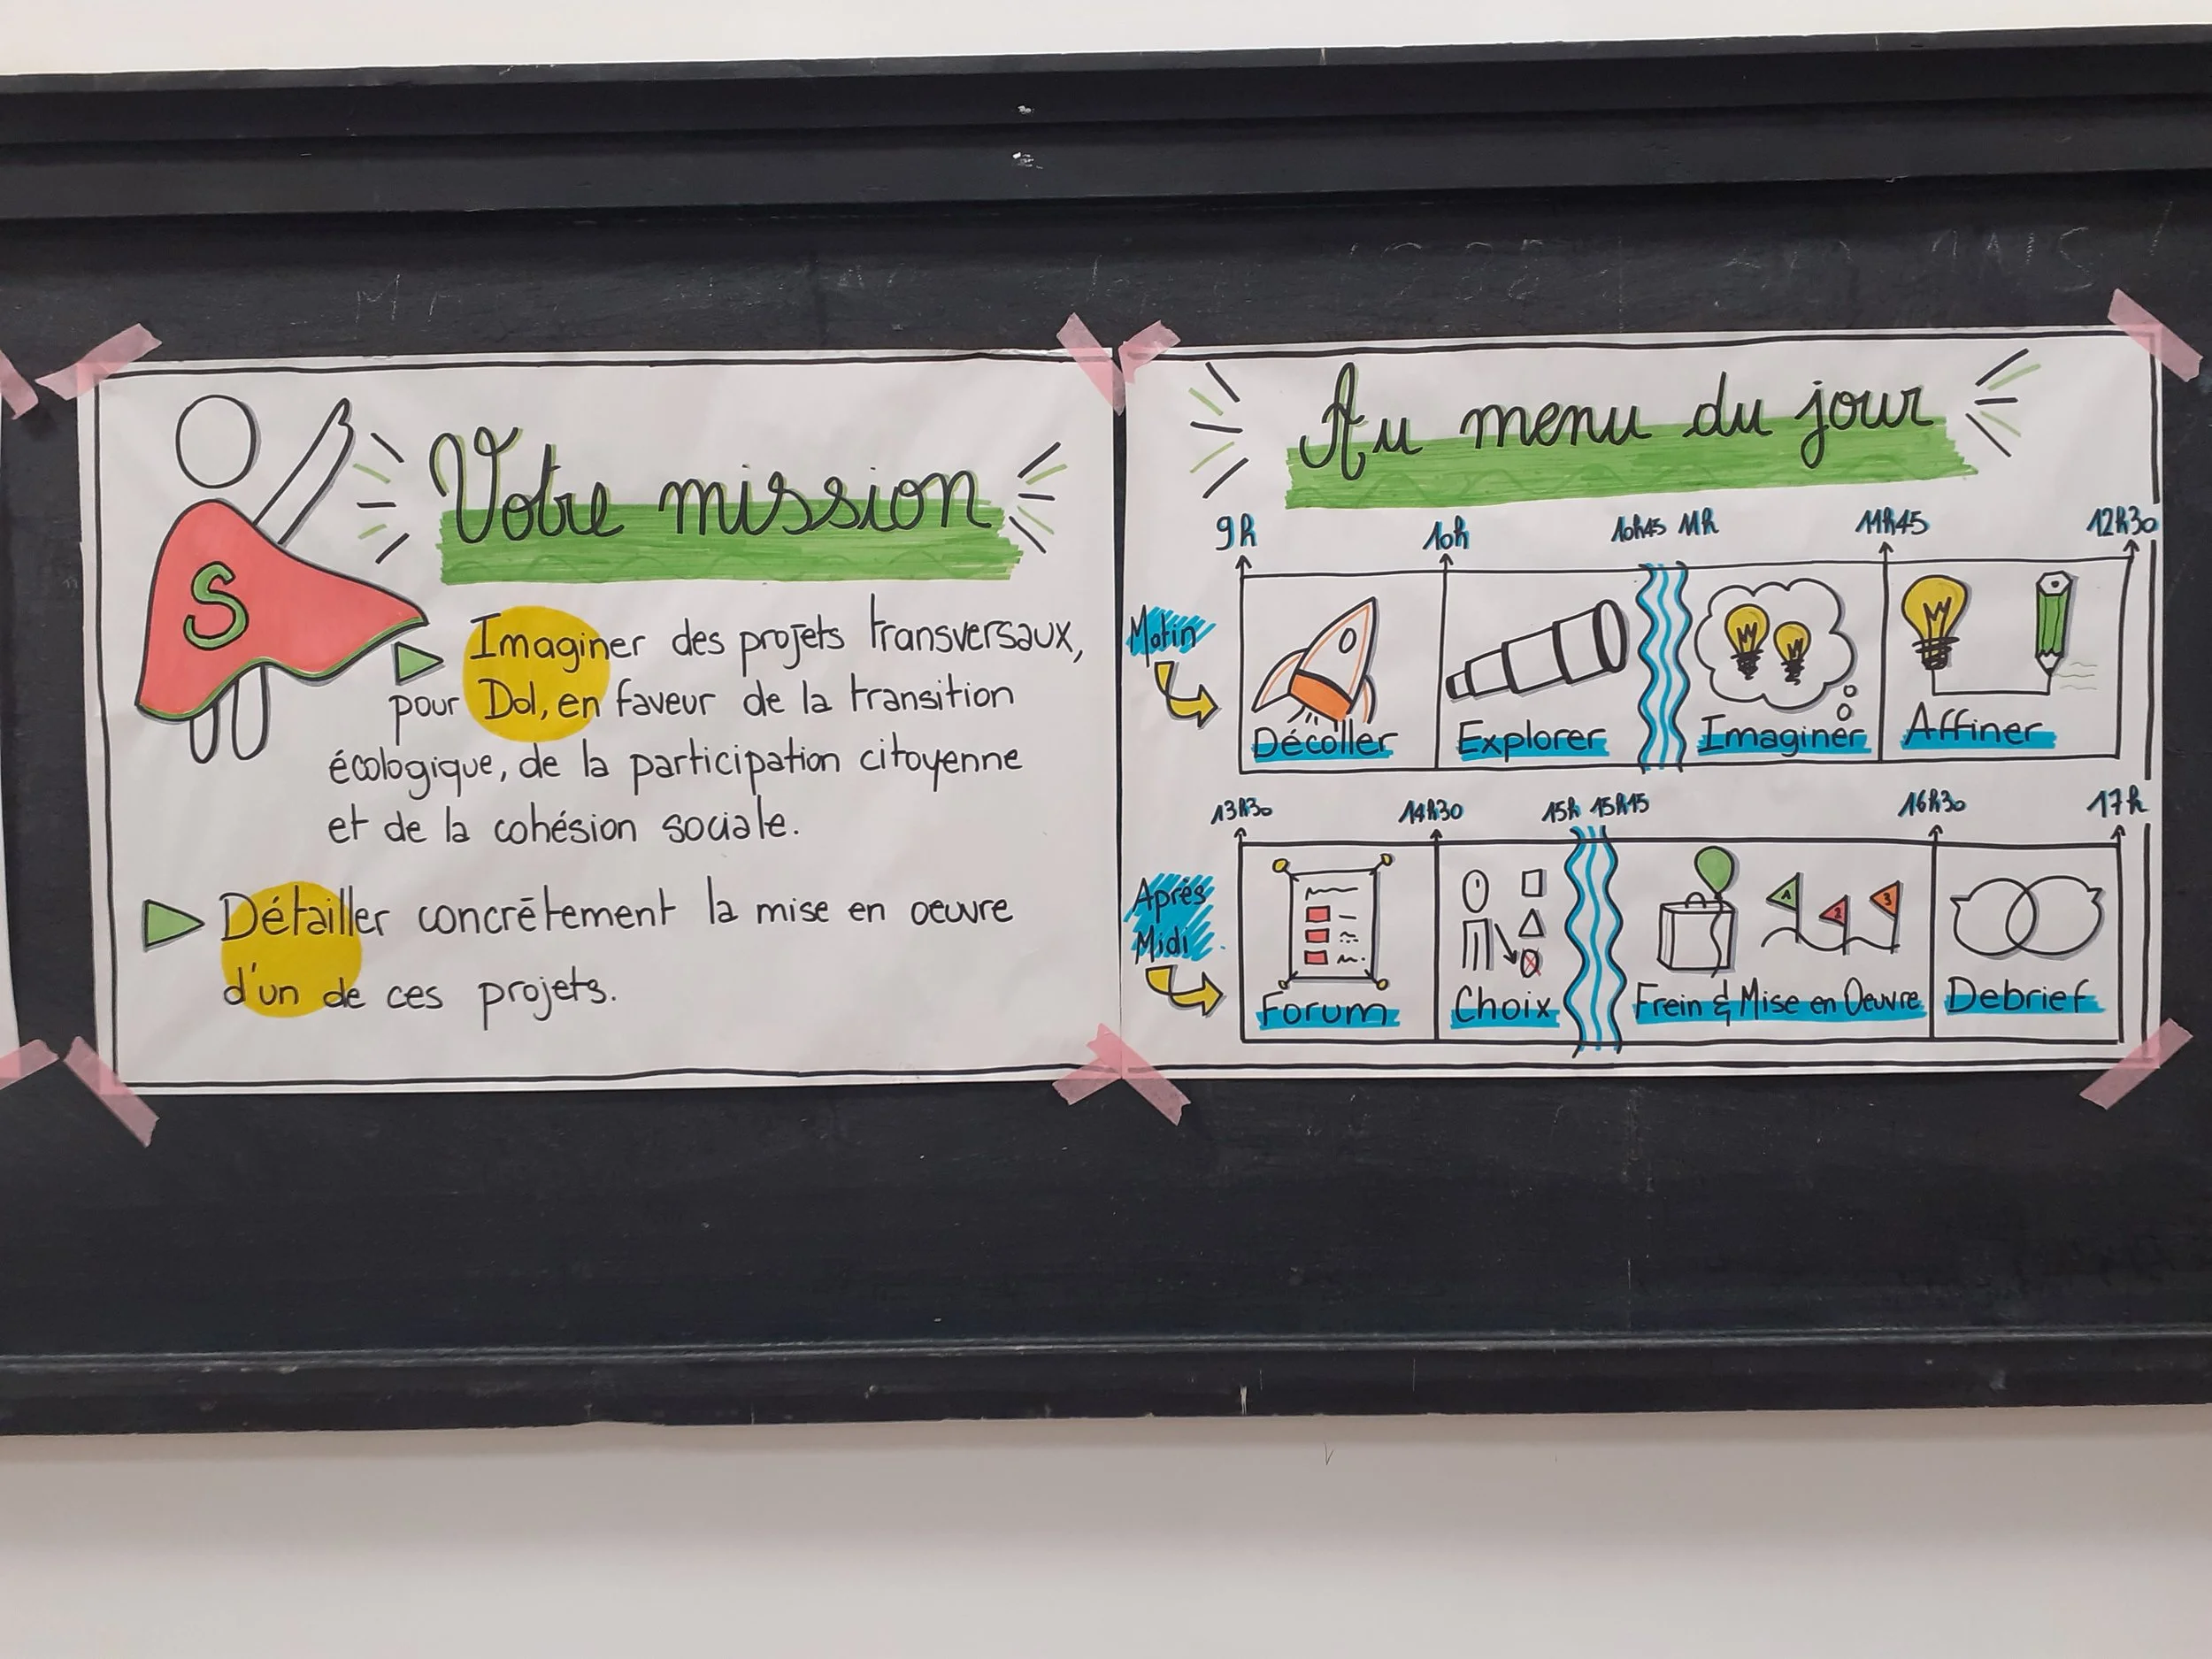 S
Votre mission
Imaginer des projets transversaux,
pour Dol, en faveur de la transition
écologique, de la participation citoyenne
et de la cohésion sociale.
Détailler concrètement la mise en oeuvre
d'un de ces projets.
Au menu du jour
9h 10h 10h45 11h 11h45 12h30
Matin
Décoller Explorer Imaginer Affiner
13h30 14h30 15h 15h15 16h30 17h
Après
Midi
1 2 3
Forum Choix Frein & Mise en Oeuvre Debrief